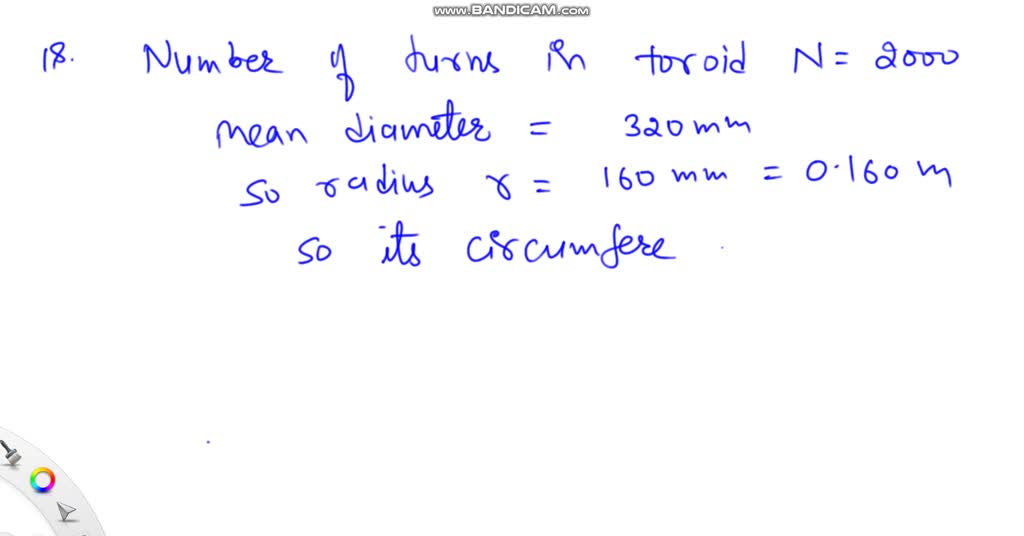 www.BANDICAM.com
18. Number of turns in toroid N = 2000
mean diameter = 320 mm
so radius r = 160 mm = 0.160 m
so its circumfere